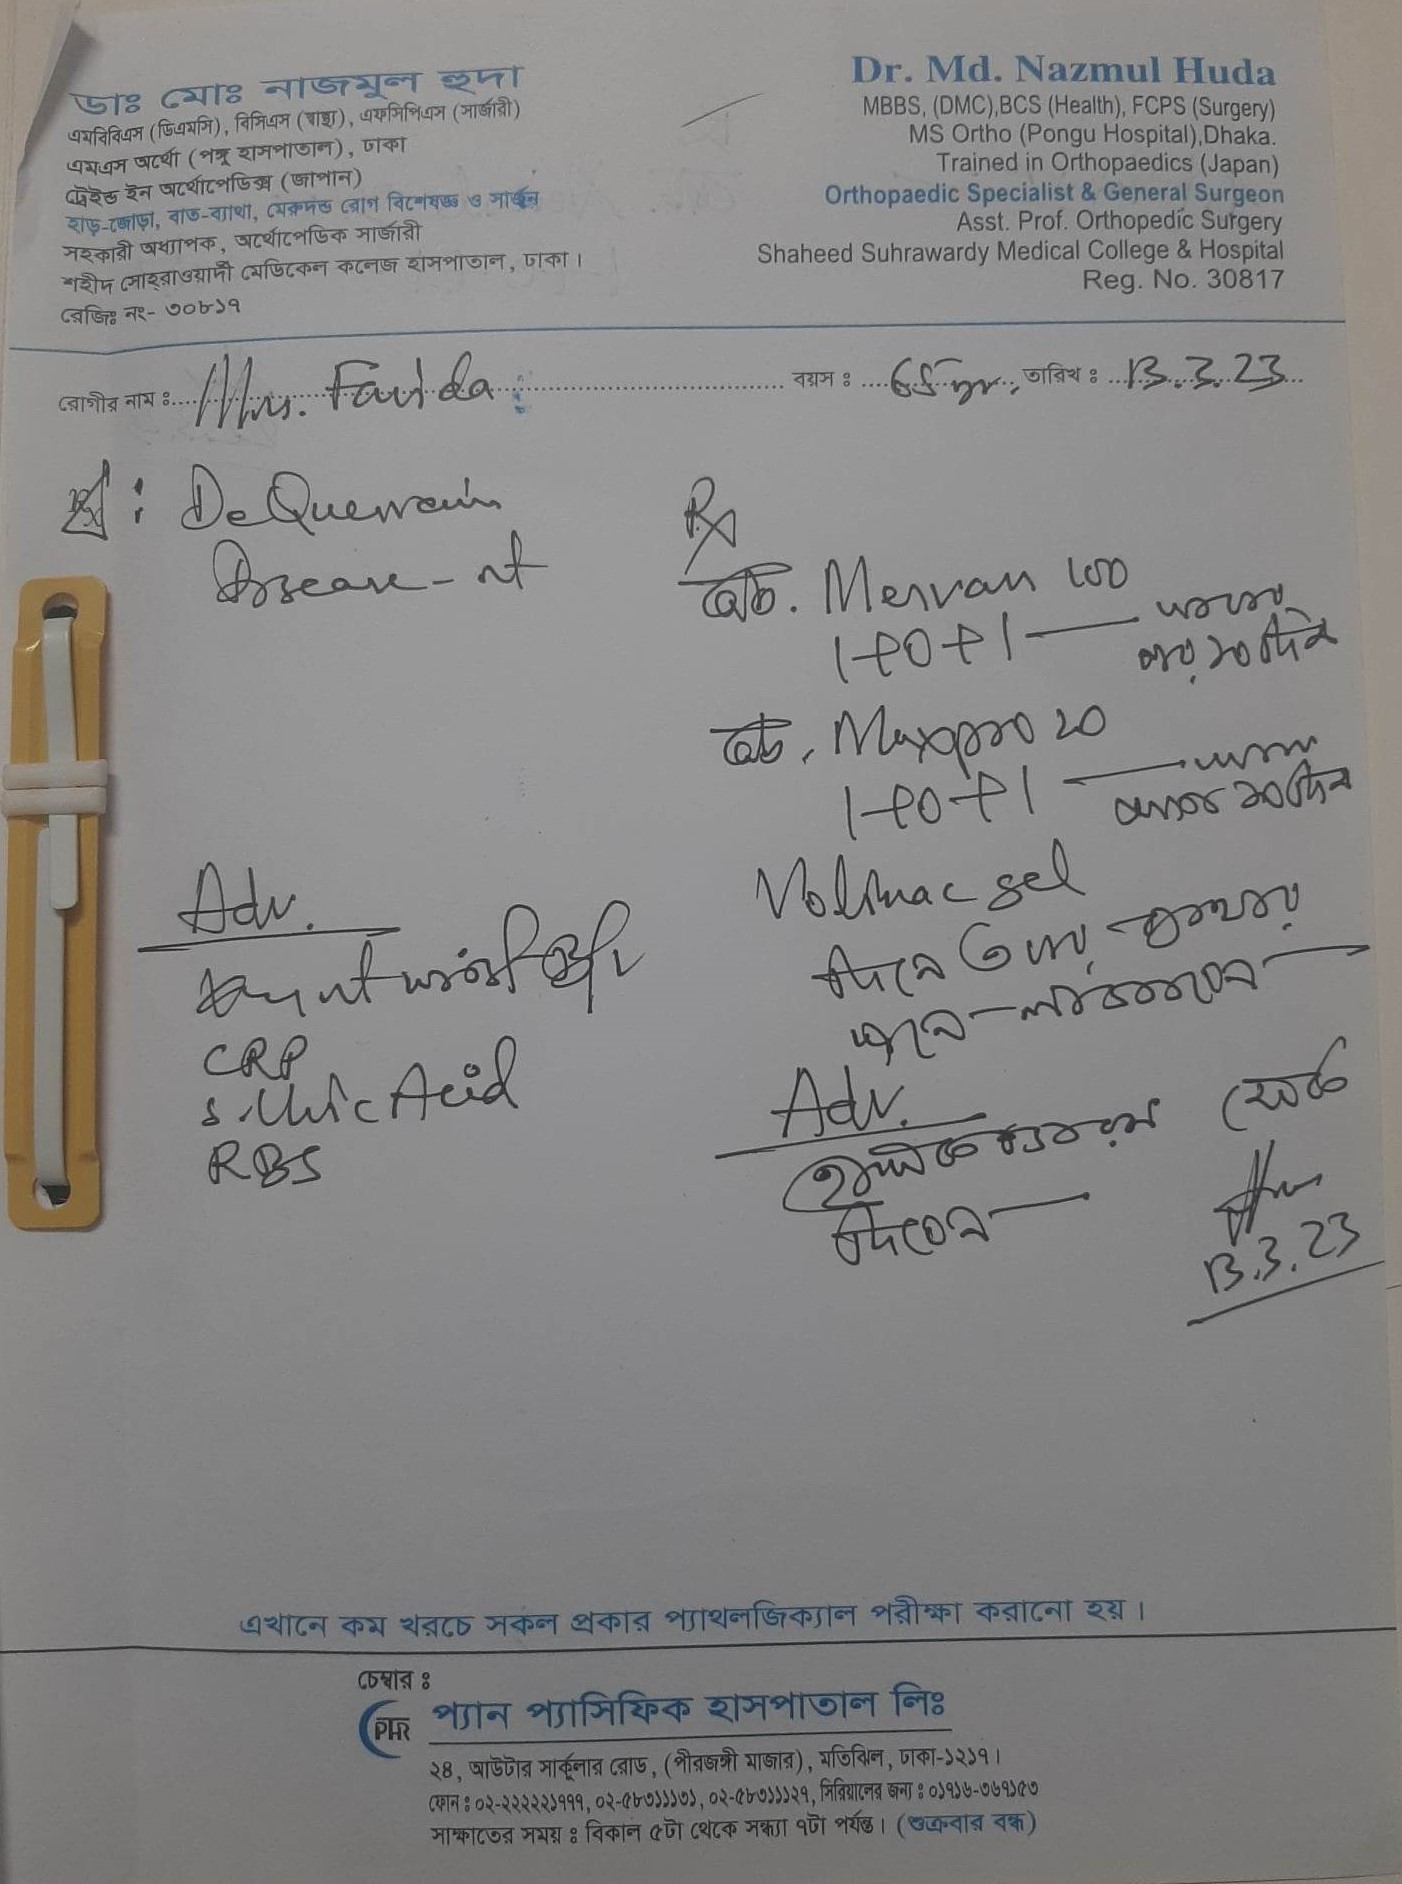 ডাঃ মোঃ নাজমুল হুদা
এমবিবিএস (ডিএমসি), বিসিএস (স্বাস্থ্য), এফসিপিএস (সার্জারী)
এমএস অর্থো (পঙ্গু হাসপাতাল), ঢাকা
ট্রেইন্ড ইন অর্থোপেডিক্স (জাপান)
হাড়-জোড়া, বাত-ব্যাথা, মেরুদন্ড রোগ বিশেষজ্ঞ ও সার্জন
সহকারী অধ্যাপক, অর্থোপেডিক সার্জারী
শহীদ সোহ্‌রাওয়ার্দী মেডিকেল কলেজ হাসপাতাল, ঢাকা।
রেজিঃ নং- ৩০৮১৭
Dr. Md. Nazmul Huda
MBBS, (DMC),BCS (Health), FCPS (Surgery)
MS Ortho (Pongu Hospital),Dhaka.
Trained in Orthopaedics (Japan)
Orthopaedic Specialist & General Surgeon
Asst. Prof. Orthopedic Surgery
Shaheed Suhrawardy Medical College & Hospital
Reg. No. 30817
রোগীর নাম : Mrs. Farida বয়স : 65 yr. তারিখ : 13.3.23
De Quervain
Disease - rt
Adv.
CRP
S. Uric Acid
RBS
Rx
ট্যাব. Mervan 100
1+0+1 — খাবার
পর ১০ দিন
ট্যাব. Maxpro 20
1+0+1 —
২০ দিন
Voltinac gel
দিনে ৩ বার
Adv.
সেঁক
দিবেন —
13.3.23
এখানে কম খরচে সকল প্রকার প্যাথলজিক্যাল পরীক্ষা করানো হয়।
চেম্বার :
PHR প্যান প্যাসিফিক হাসপাতাল লিঃ
২৪, আউটার সার্কুলার রোড, (পীরজঙ্গী মাজার), মতিঝিল, ঢাকা-১২১৭।
ফোন : ০২-২২২২২১৭৭৭, ০২-৫৮৩১১১৩১, ০২-৫৮৩১১১২৭, সিরিয়ালের জন্য : ০১৭১৬-৩৬৭১৫৩
সাক্ষাতের সময় : বিকাল ৫টা থেকে সন্ধ্যা ৭টা পর্যন্ত। (শুক্রবার বন্ধ)